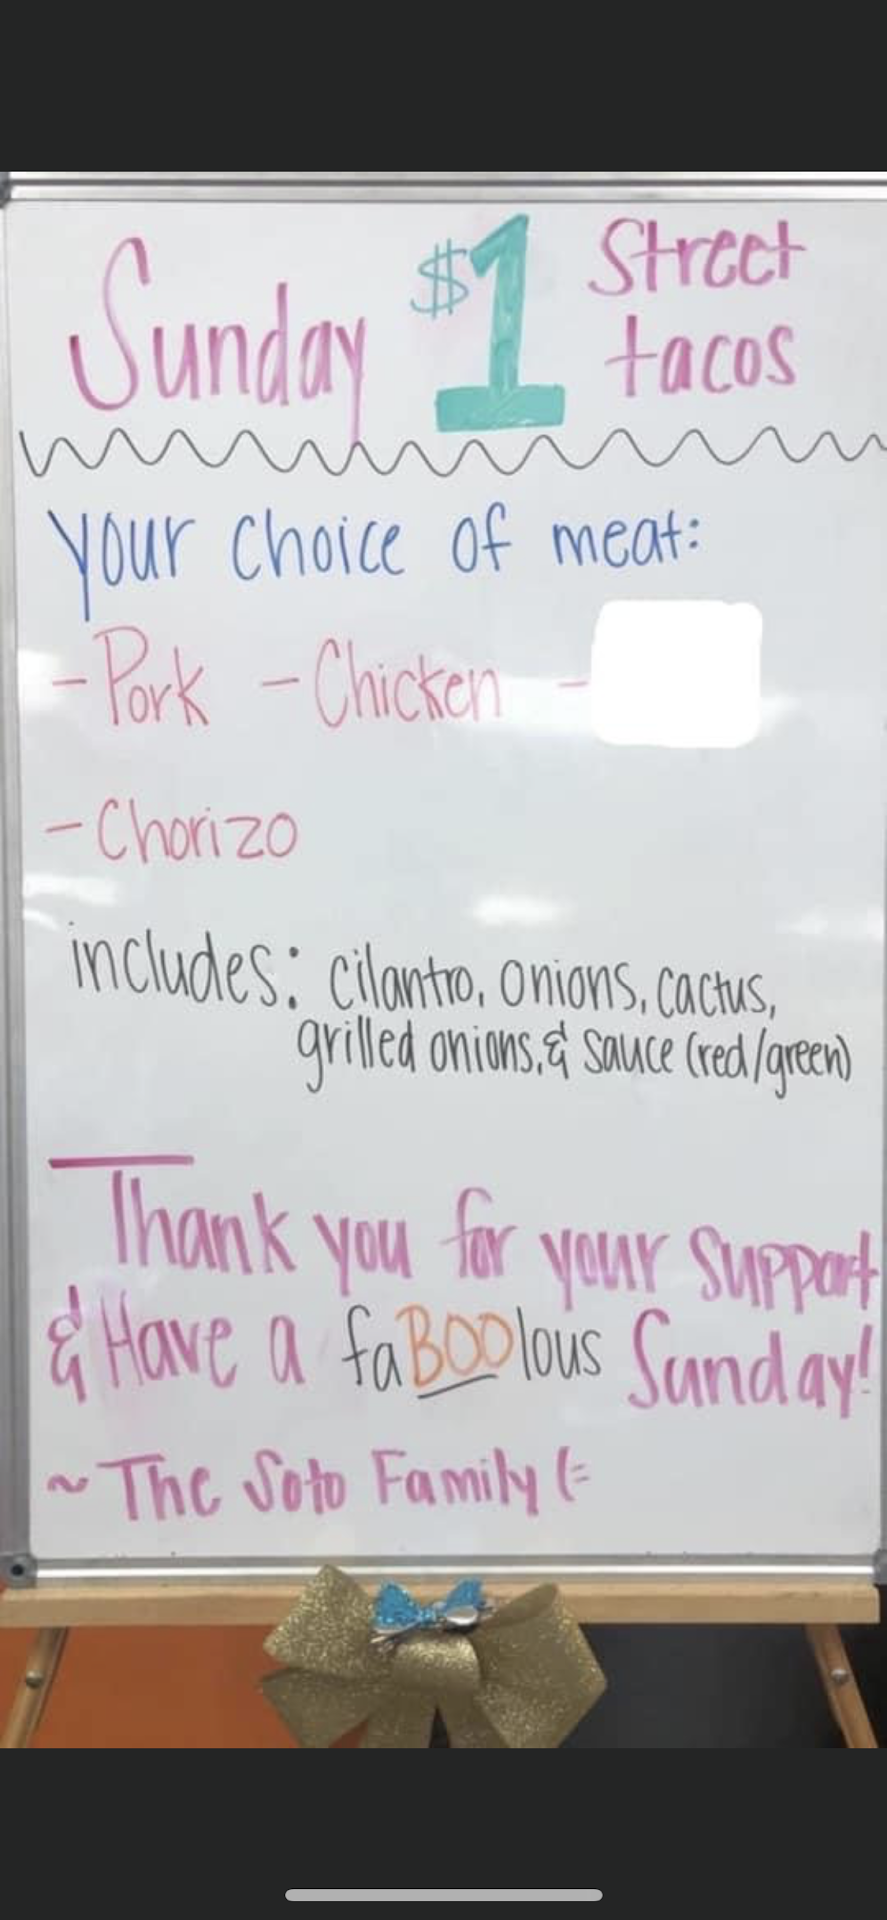 Sunday $1 Street tacos
your choice of meat:
-Pork -Chicken -
-Chorizo
includes: cilantro, onions, cactus,
grilled onions, & sauce (red/green)
Thank you for your support
& Have a faBOOlous Sunday!
~ The Soto Family (=